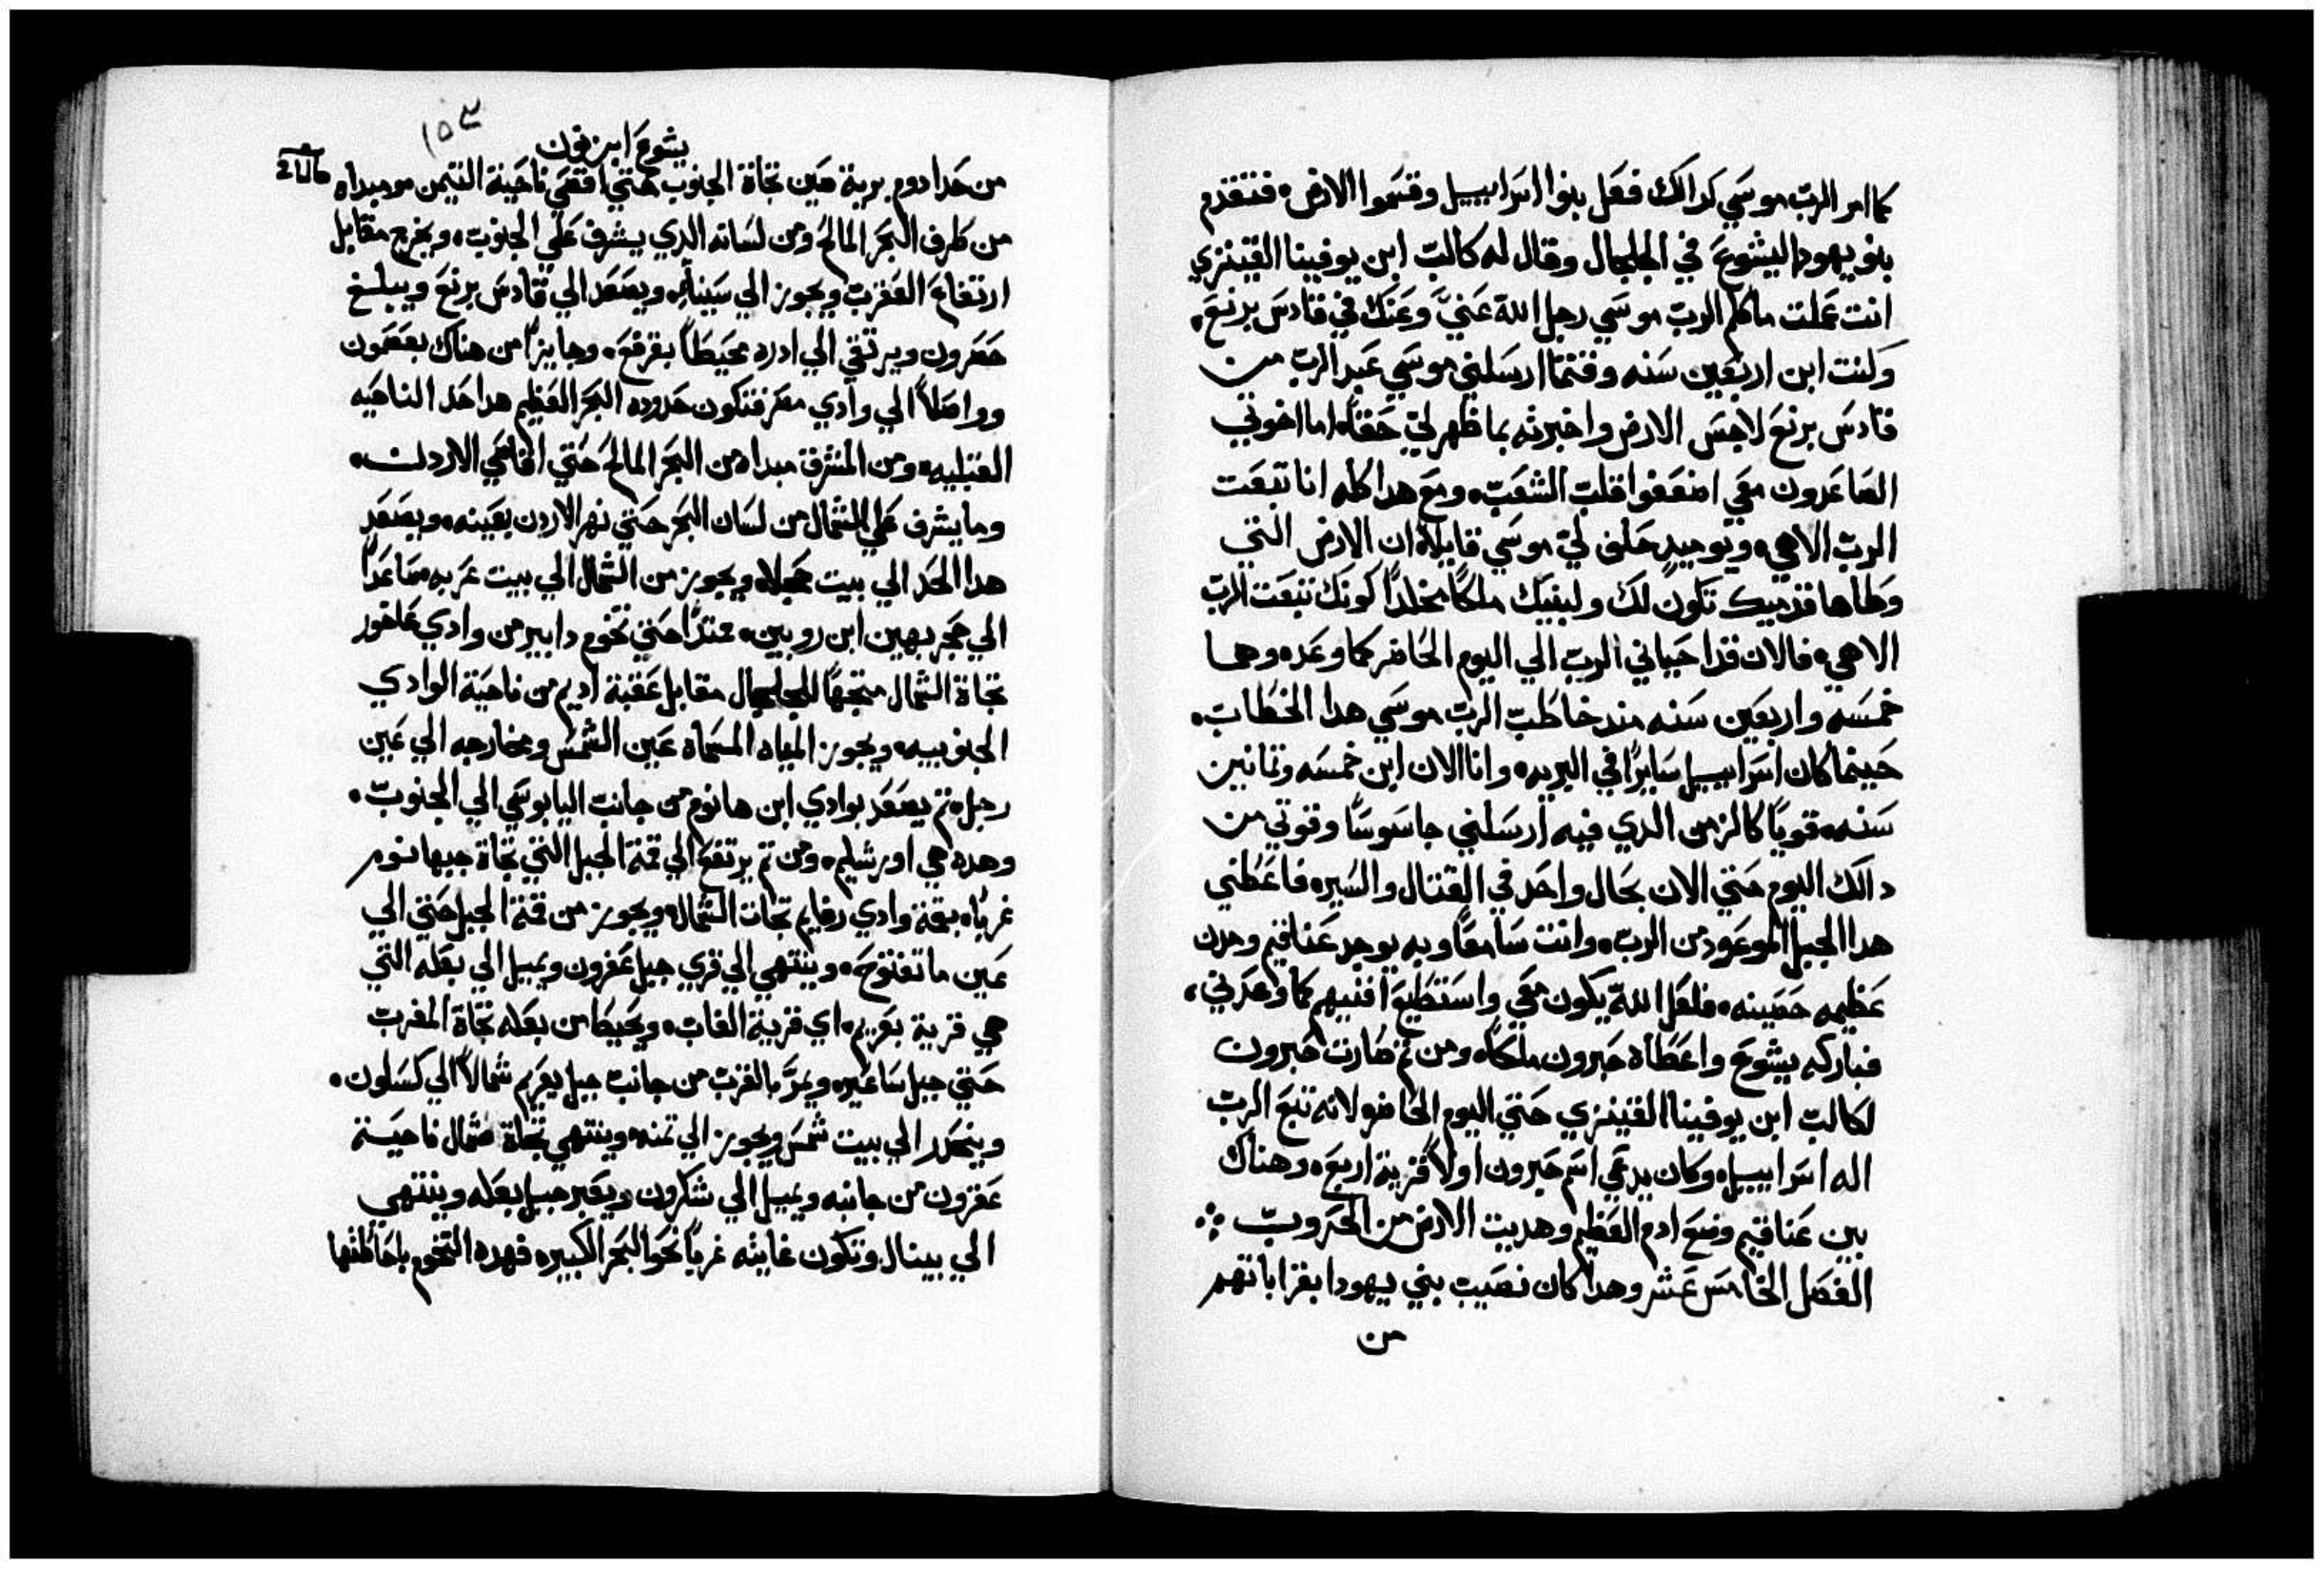 كما امر الرب موسي كدالك فعل بنوا اسراييل وقسموا الارض فتقدم
بنو يهودا ليشوع في الجلجال وقال له كالب ابن يوفينا القينزي
انت عملت ما كلم الرب موسي رجل الله عني وعنك في قادس برنع
وكنت ابن اربعين سنه وقتما ارسلني موسي عبد الرب من
قادس برنع لاجس الارض واخبرته بما ظهر لي حقا اما اخوتي
الصاعدون معي اضعفوا قلب الشعب ومع هدا كله انا تبعت
الرب الاهي ويوميد حلف لي موسي قايلا ان الارض التي
وطاها قدميك تكون لك ولبنيك ملكا مخلدا كونك تبعت الرب
الاهي فالان قد احياني الرب الي اليوم الحاضر كما وعده وهما
خمسه واربعين سنه مند خاطب الرب موسي هدا الخطاب
حينما كان اسراييل سايرا في البريه وانا الان ابن خمسه وتمانين
سنه قويا كالزمن الدي فيه ارسلني جاسوسا وقوتي من
دالك اليوم حتي الان بحال واحد في القتال والسير فاعطني
هدا الجبل الموعود من الرب وانت سامعا وبه يوجد عناقيم ومدن
عظيمه حصينه فلعل الله يكون معي واستطيع افنيهم كما وعدني
فباركه يشوع واعطاه حبرون ملكا ومن تم صارت حبرون
لكالب ابن يوفينا القينزي حتي اليوم الحاضر لانه تبع الرب
اله اسراييل وكان يدعي اسم حبرون اولا قرية اربع وهناك
بين عناقيم وضع ادم العظيم وهديت الارض من الحروب
الفصل الخامس عشر وهدا كان نصيب بني يهودا بقراباتهم
من
١٥٣
يشوع ابن نون
من حد ادوم برية صين تجاة الجنوب حتي اقصي ناحية التيمن ومبداه
من طرف البحر المالح ومن لسانه الدي يشرف علي الجنوب ويخرج مقابل
ارتفاع العقرب ويجوز الي سينا ويصعد الي قادس برنع ويبلغ
حصرون ويرتقي الي ادره محيطا بقرقع وجايزا من هناك بعصمون
وواصلا الي وادي مصر فتكون حدوده البحر العظيم هدا حد الناحيه
القبليه ومن المشرق مبداه من البحر المالح حتي اقاصي الاردن
وما يشرف علي الشمال من لسان البحر حتي نهر الاردن بعينه ويصعد
هدا الحد الي بيت حجلا ويجوز من الشمال الي بيت عربه صاعدا
الي حجر بهين ابن روبين ممتدا حتي تخوم دابير من وادي عاخور
تجاة الشمال متجها للجلجال مقابل عقبة اديم من ناحية الوادي
الجنوبيه ويجوز المياه المسماه عين الشمس ومخارجه الي عين
رجل تم يصعد بوادي ابن هانوم من جانب اليابوسي الي الجنوب
وهده هي اورشليم ومن تم يرتفع الي قمة الجبل التي تجاة جيهانوم
غربا بقمة وادي رفايم تجات الشمال ويجوز من قمة الجبل حتي الي
عين ما تفتوح وينتهي الي قري جبل عفرون ويميل الي بعله التي
هي قرية يعريم اي قرية الغاب ويحيط من بعله تجاة المغرب
حتي جبل ساعير ويمر بالقرب من جانب جبل يعريم شمالا الي كسلون
وينحدر الي بيت شمس ويجوز الي تمنه وينتهي تجاة شمال ناحية
عقرون من جانبه ويميل الي شكرون ويعبر جبل بعله وينتهي
الي يبنال وتكون غايته غربا نحو البحر الكبير فهده التخوم باحاطتها